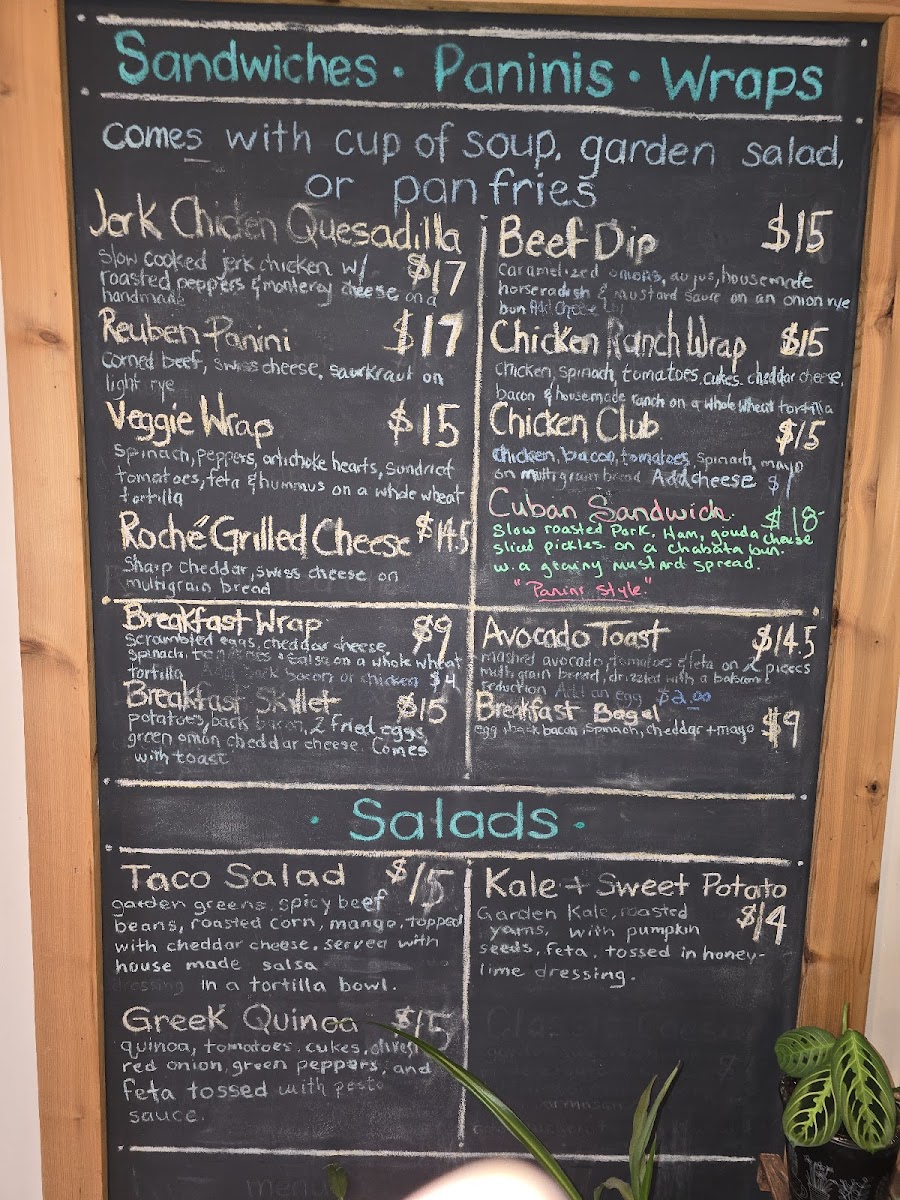 Sandwiches · Paninis · Wraps
comes with cup of soup, garden salad,
or pan fries
Jerk Chicken Quesadilla
$17
slow cooked jerk chicken w/
roasted peppers & monterey cheese on a
handmade
Reuben Panini $17
corned beef, swiss cheese, saurkraut on
light rye
Veggie Wrap $15
spinach, peppers, artichoke hearts, sundried
tomatoes, feta & hummus on a whole wheat
tortilla
Roché Grilled Cheese $14.5
Sharp cheddar, swiss cheese on
multigrain bread
Beef Dip $15
caramelized onions, au jus, housemade
horseradish & mustard sauce on an onion rye
bun Add cheese
Chicken Ranch Wrap $15
chicken, spinach, tomatoes, cukes, cheddar cheese,
bacon & housemade ranch on a whole wheat tortilla
Chicken Club $15
chicken, bacon, tomatoes, spinach, mayo
on multigrain bread Add cheese $1
Cuban Sandwich $18-
slow roasted Pork, Ham, gouda cheese
sliced pickles on a chabata bun.
w. a grainy mustard spread.
"Panini style."
Breakfast Wrap $9
scrambled eggs, cheddar cheese,
spinach, & salsa on a whole wheat
tortilla back bacon or chicken $4
Breakfast Skillet $15
potatoes, back bacon, 2 fried eggs,
green onion cheddar cheese. Comes
with toast
Avocado Toast $14.5
mashed avocado, tomatoes & feta on 2 pieces
multigrain bread, drizzled with a balsamic
reduction Add an egg $2.00
Breakfast Bagel $9
egg, back bacon, spinach, cheddar + mayo
· Salads ·
Taco Salad $15
garden greens, spicy beef
beans, roasted corn, mango, topped
with cheddar cheese. served with
house made salsa
dressing in a tortilla bowl.
Greek Quinoa $15
quinoa, tomatoes, cukes, olives,
red onion, green peppers, and
feta tossed with pesto
sauce.
Kale + Sweet Potato
$14
Garden Kale, roasted
yams, with pumpkin
seeds, feta, tossed in honey-
lime dressing.
menu